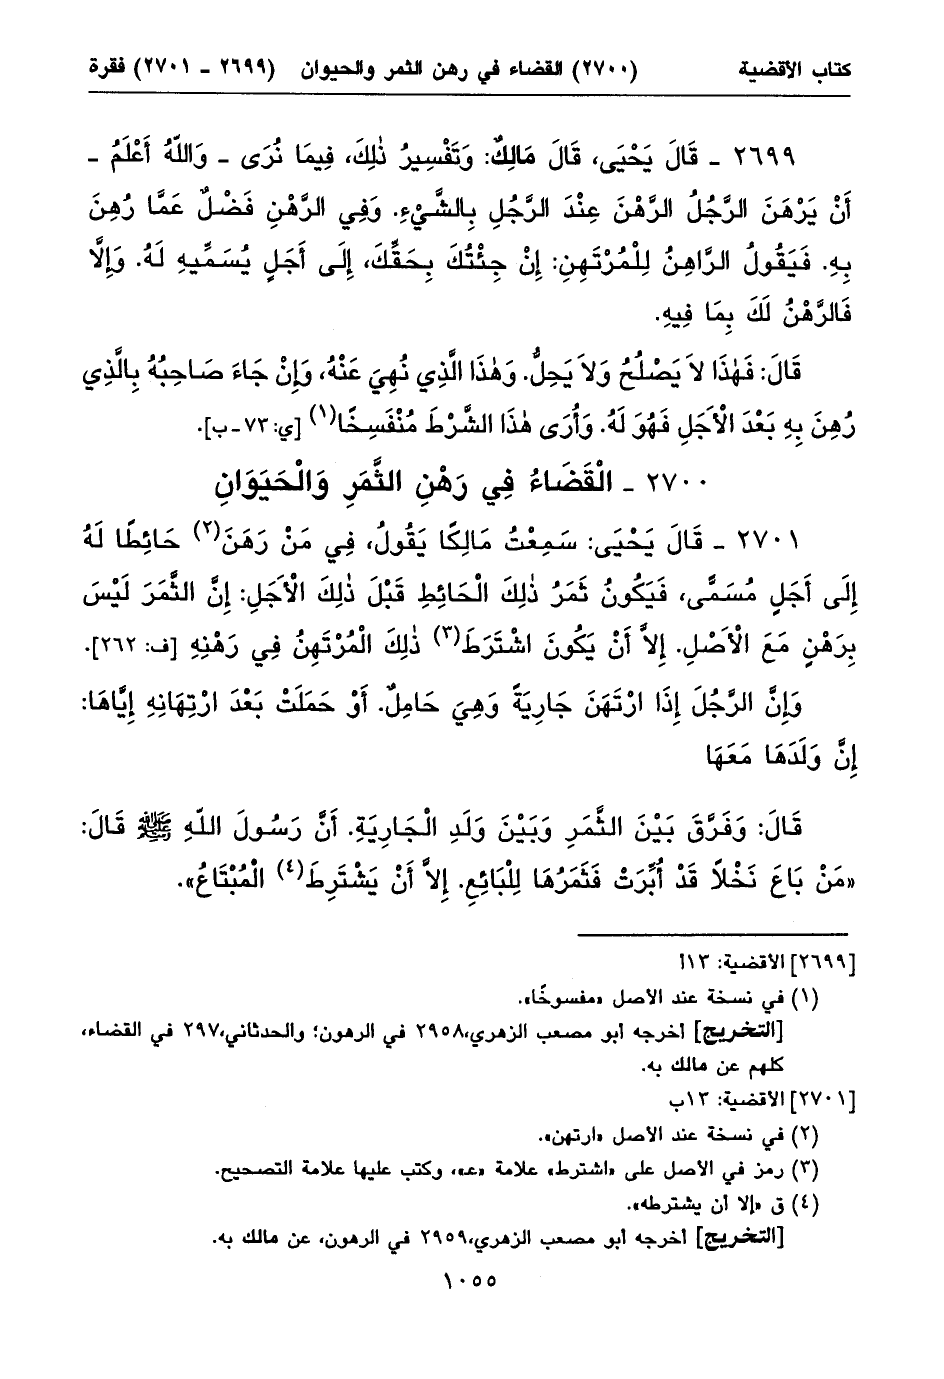 كتاب الأقضية (٢٧٠٠) القضاء في رهن الثمر والحيوان (٢٦٩٩ - ٢٧٠١) فقرة
٢٦٩٩ - قَالَ يَحْيَى، قَالَ مَالِكٌ: وَتَفْسِيرُ ذٰلِكَ، فِيمَا نُرَى - وَاللّٰهُ أَعْلَمُ -
أَنْ يَرْهَنَ الرَّجُلُ الرَّهْنَ عِنْدَ الرَّجُلِ بِالشَّيْءِ. وَفِي الرَّهْنِ فَضْلٌ عَمَّا رُهِنَ
بِهِ. فَيَقُولُ الرَّاهِنُ لِلْمُرْتَهِنِ: إِنْ جِئْتُكَ بِحَقِّكَ، إِلَى أَجَلٍ يُسَمِّيهِ لَهُ. وَإِلَّا
فَالرَّهْنُ لَكَ بِمَا فِيهِ.
قَالَ: فَهٰذَا لاَ يَصْلُحُ وَلاَ يَحِلُّ. وَهٰذَا الَّذِي نُهِيَ عَنْهُ، وَإِنْ جَاءَ صَاحِبُهُ بِالَّذِي
رُهِنَ بِهِ بَعْدَ الْأَجَلِ فَهُوَ لَهُ. وَأُرَى هٰذَا الشَّرْطَ مُنْفَسِخًا(١) [ي: ٧٣ - ب].
٢٧٠٠ - الْقَضَاءُ فِي رَهْنِ الثَّمَرِ وَالْحَيَوَانِ
٢٧٠١ - قَالَ يَحْيَى: سَمِعْتُ مَالِكًا يَقُولُ، فِي مَنْ رَهَنَ(٢) حَائِطًا لَهُ
إِلَى أَجَلٍ مُسَمًّى، فَيَكُونُ ثَمَرُ ذٰلِكَ الْحَائِطِ قَبْلَ ذٰلِكَ الْأَجَلِ: إِنَّ الثَّمَرَ لَيْسَ
بِرَهْنٍ مَعَ الْأَصْلِ. إِلاَّ أَنْ يَكُونَ اشْتَرَطَ(٣) ذٰلِكَ الْمُرْتَهِنُ فِي رَهْنِهِ [ف: ٢٦٢].
وَإِنَّ الرَّجُلَ إِذَا ارْتَهَنَ جَارِيَةً وَهِيَ حَامِلٌ. أَوْ حَمَلَتْ بَعْدَ ارْتِهَانِهِ إِيَّاهَا:
إِنَّ وَلَدَهَا مَعَهَا
قَالَ: وَفَرَّقَ بَيْنَ الثَّمَرِ وَبَيْنَ وَلَدِ الْجَارِيَةِ. أَنَّ رَسُولَ اللّٰهِ ﷺ قَالَ:
«مَنْ بَاعَ نَخْلاً قَدْ أُبِّرَتْ فَثَمَرُهَا لِلْبَائِعِ. إِلاَّ أَنْ يَشْتَرِطَ(٤) الْمُبْتَاعُ».
[٢٦٩٩] الأقضية: ١٣أ
(١) في نسخة عند الأصل «مفسوخًا».
[التخريج] أخرجه أبو مصعب الزهري،٢٩٥٨ في الرهون؛ والحدثاني،٢٩٧ في القضاء،
كلهم عن مالك به.
[٢٧٠١] الأقضية: ١٣ب
(٢) في نسخة عند الأصل «ارتهن».
(٣) رمز في الأصل على «اشترط» علامة «عـ»، وكتب عليها علامة التصحيح.
(٤) ق «إلا أن يشترطه».
[التخريج] أخرجه أبو مصعب الزهري،٢٩٥٩ في الرهون، عن مالك به.
١٠٥٥